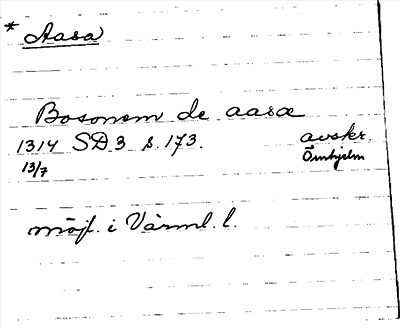 * Aasa
Bosonem de aasa
1314 SD 3 s. 173. avskr.
13/7 Örnhjelm
möjl. i Värml. l.